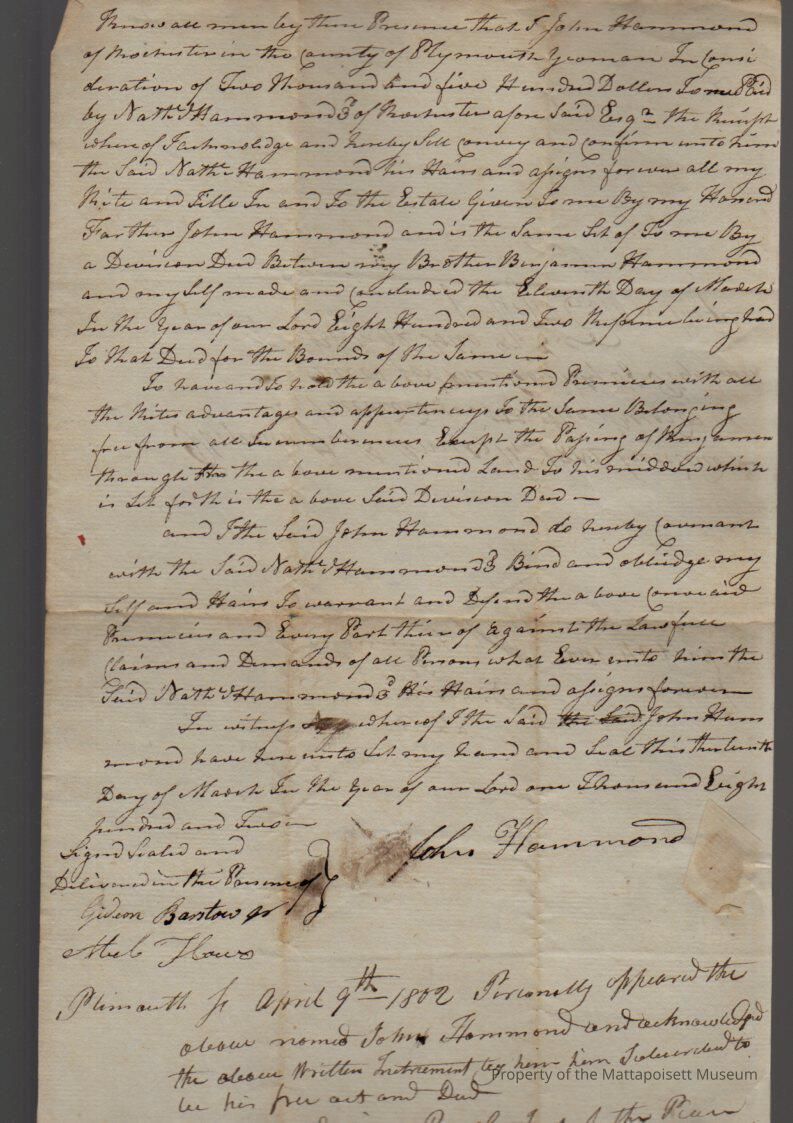 Know all men by these Presence that I John Hammond
of Rochester in the County of Plymouth Yeoman In Consi
deration of Two Thousand and five Hundred Dollers To me Paid
by Nathl Hammond 3d of Rochester afore Said Esqr the Receipt
where of I acknolidge and hereby Sell Convey and Confirm unto him
the Said Nathl Hammond his Hairs and asigns forever all my
Rite and Title In and To the Estate Given To me By my Honerd
Farther John Hammond and is the Same Set of To me By
a Devision Deed Between my Brother Benjamin Hammond
and my Self made and Concluded the Eleventh Day of March
In the Year of our Lord Eight Hundred and Two Referrence being had
To that Deed for the Bounds of the Same
To have and To hold the a bove mentioned Premices with all
the Rites advantages and appurtenancys To the Same Belonging
free from all Incumberences Except the Passing of Benjamen
through the the a bove mentioned Land To his middow which
is Set forth is the a bove Said Devision Deed
and I the Said John Hammond do hereby Covenant
with the Said Nathl Hammond 3d Bind and obleidge my
Self and Hairs To warrant and Defend the a bove Conveaid
Premices and Every Part there of against the Lawfull
Claims and Demands of all Persons what Ever unto him the
Said Nathl Hammond 3d His Hairs and asigns forever
In witness where of I the Said the Said John Ham
mond have here unto Set my hand and Seal this thirteenth
Day of March In the Year of our Lord one Thousand Eight
hundred and Two
Signd Sealed and
Delivered in the Presence of
John Hammond
Gideon Barstow Jr
Plimouth Ss April 9th 1802 Personally appeared the
above named John Hammond and acknowledged
the above Written Instrement by him Subscribed to
be his free act and Deed
Property of the Mattapoisett Museum